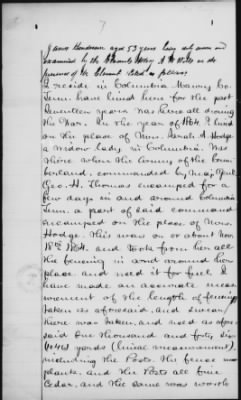 James Henderson aged 53 years being duly sworn and
examined by the Claimants Atty A. H. in the
presence of the Claimant stated as follows;
I reside in Columbia Maury Co.
Tenn. have lived here for the past
Seventeen years was here all during
the War. In the year of 1864 I lived
on the place of Mrs. Sarah A. Hodge
a widow lady in Columbia. Was
there when the Army of the Cum-
berland, commanded by Maj. Genl.
Geo. H. Thomas encamped for a
few days in and around Columbia
Tenn. a part of said command
encamped on the place of Mrs.
Hodge. This was on or about Nov.
18th 1864. and took from her all
the fencing in and around her
place and used it for fuel. I
have made an accurate meas-
urement of the length of fencing
taken as aforesaid, and swear
there was taken, and used as afore-
said One thousand and forty six
(1046) yards (lineal measurement)
including the Posts. The fence was
plank and the Posts all fine
Cedar, and the same was worth